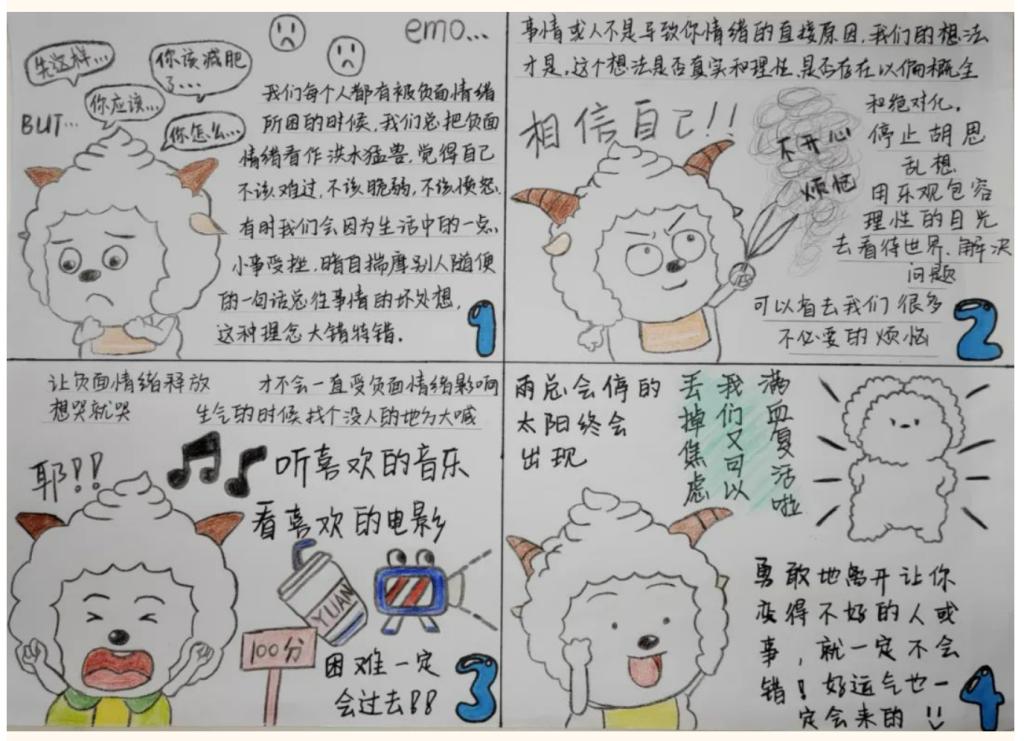 emo...
先这样...
你该减肥
了...
你应该...
BUT...
你怎么...
我们每个人都有被负面情绪
所困的时候,我们总把负面
情绪看作洪水猛兽,觉得自己
不该难过,不该脆弱,不该愤怒、
有时我们会因为生活中的一点、
小事受挫,暗自揣摩别人随便
的一句话总往事情的坏处想,
这种理念大错特错.
1
事情或人不是导致你情绪的直接原因,我们的想法
才是,这个想法是否真实和理性,是否存在以偏概全
和绝对化,
停止胡思
乱想
用乐观包容
理性的目光
去看待世界、解决
问题
可以省去我们很多
不必要的烦恼
相信自己!!
不开心
烦恼
2
让负面情绪释放
想哭就哭
才不会一直受负面情绪影响
生气的时候找个没人的地方大喊
耶!!
听喜欢的音乐
看喜欢的电影
YUAN
100分
困难一定
会过去!!
3
雨总会停的
太阳终会
出现
满血复活啦
我们又可以
丢掉焦虑
勇敢地离开让你
变得不好的人或
事,就一定不会
错!好运气也一
定会来的!!
4